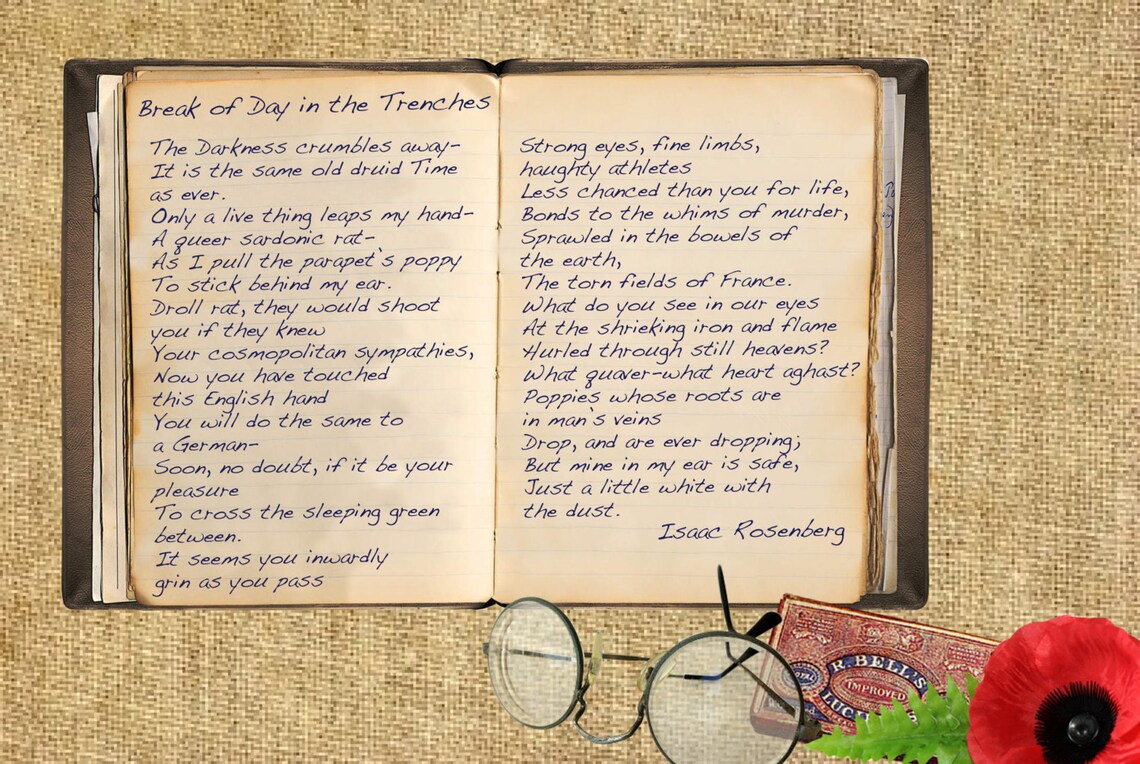 Break of Day in the Trenches
The Darkness crumbles away-
It is the same old druid Time
as ever.
Only a live thing leaps my hand-
A queer sardonic rat-
As I pull the parapet`s poppy
To stick behind my ear.
Droll rat, they would shoot
you if they knew
Your cosmopolitan sympathies,
Now you have touched
this English hand
You will do the same to
a German-
Soon, no doubt, if it be your
pleasure
To cross the sleeping green
between.
It seems you inwardly
grin as you pass
Strong eyes, fine limbs,
haughty athletes
Less chanced than you for life,
Bonds to the whims of murder,
Sprawled in the bowels of
the earth,
The torn fields of France.
What do you see in our eyes
At the shrieking iron and flame
Hurled through still heavens?
What quaver-what heart aghast?
Poppies whose roots are
in man`s veins
Drop, and are ever dropping;
But mine in my ear is safe,
Just a little white with
the dust.
Isaac Rosenberg
R. BELL'S
IMPROVED